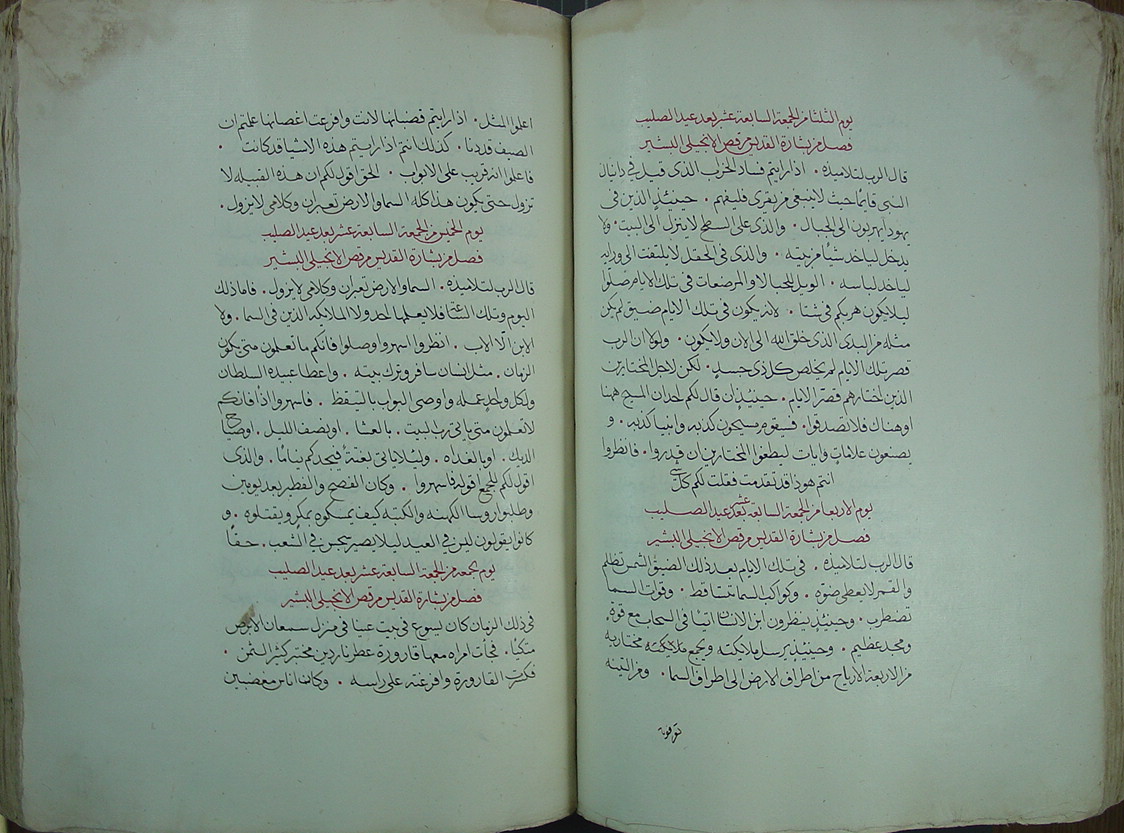 يوم الثلثا من الجمعة السابعة عشر بعد عيد الصليب
فصل من بشارة القديس مرقص الانجيلي البشير
قال الرب لتلاميذه . اذا رايتم فساد الخراب الذي قيل في دانيال
النبي قايمًا حيث لا ينبغي من يقري فليفهم . حينئذٍ الذين في
يهودا يهربون الى الجبال . والذي على السطح لا ينزل الى البيت . ولا
يدخل لياخد شيًا من بيته . والذي في الحقل لا يلتفت الى ورايه
لياخد لباسه . الويل للحبالا والمرضعات في تلك الايام صلوا
ليلا يكون هربكم في شتا . لانه يكون في تلك الايام ضيق لم يكن
مثله من البدى الذي خلق الله الى الان ولا يكون . ولولا ان الرب
قصر تلك الايام لم يخلص كل ذي جسد . لكن لاجل المختارين
الذين اختارهم قصر الايام . حينئذٍ ان قال لكم احدان المسيح ههنا
او هناك فلا تصدقوا . فسيقوم مسيحيون كذبه وانبيا كذبه . و
يصنعون علامات وايات ليطغوا المختارين ان قدروا . فانظروا
انتم هوذا قد تقدمت فقلت لكم كل شي
يوم الاربعا من الجمعة السابعة عشر بعد عيد الصليب
فصل من بشارة القديس مرقص الانجيلي البشير
قال الرب لتلاميذه . في تلك الايام بعد ذلك الضيق الشمس تظلم
والقمر لا يعطي ضوه . وكواكب السما تتساقط . وقوات السما
تضطرب . وحينئذٍ ينظرون ابن الانسان اتيًا في السحاب مع قوة
ومجد عظيم . وحينئذٍ يرسل ملايكته ويجمع مختاريه
من الاربعة الارياح من اطراف الارض الى اطراف السما . ومن التينه
اعلموا المثل . اذا رايتم قضبانها لانت وافرعت اغصانها علمتم ان
الصيف قد دنا . كذلك انتم اذا رايتم هذه الاشيا قد كانت .
فاعلموا انه قريب على الابواب . الحق اقول لكم ان هذه القبيله لا
تزول حتى يكون هذا كله السما والارض تعبران وكلامي لا يزول .
يوم الخميس من الجمعة السابعة عشر بعد عيد الصليب
فصل من بشارة القديس مرقص الانجيلي البشير
قال الرب لتلاميذه . السما والارض تعبران وكلامي لا يزول . فاما ذلك
اليوم وتلك الساعة فلا يعلمها احد ولا الملايكه الذين في السما . ولا
الابن الا الاب . انظروا اسهروا وصلوا فانكم ما تعلمون متى يكون
الزمان . مثل انسان سافر وترك بيته . واعطا عبيده السلطان
ولكل واحد عمله واوصى البواب باليقظ . فاسهروا اذًا فانكم
لا تعلمون متى ياتي رب البيت . بالعشا . او نصف الليل . او صياح
الديك . او بالغداه . وليلا ياتي بغتة فيجدكم نيامًا . والذي
اقول لكم للجميع اقوله فاسهروا . وكان الفصح والفطير بعد يومين
وطلبوا روسا الكهنه والكتبه كيف يمسكوه بمكر ويقتلوه . و
كانوا يقولون ليس في العيد ليلا يصير سجس في الشعب . حقًا
يوم الجمعه من الجمعة السابعة عشر بعد عيد الصليب
فصل من بشارة القديس مرقص الانجيلي البشير
في ذلك الزمان كان يسوع في بيت عنيا في منزل سمعان الابرص
متكيًا . فجات امراه معها قارورة عطر ناردين مختبر كثير الثمن .
فكسرت القارورة وافرغته على راسه . وكان اناس مغضبين